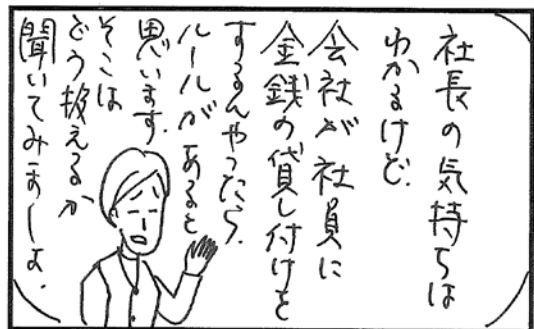 社長の気持ちは
わかるけど.
会社が社員に
金銭の貸し付けを
するんやったら.
ルールがあると
思います.
そこは
どう扱えるか
聞いてみましょ.